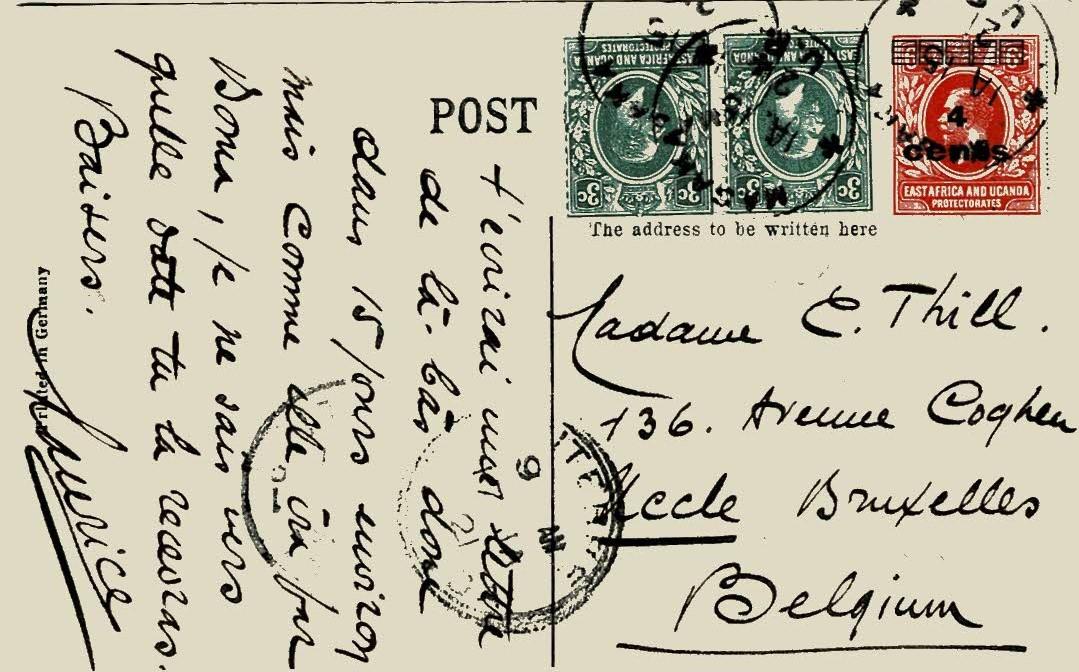 POST
EAST AFRICA AND UGANDA
PROTECTORATES
3c 3c
EAST AFRICA AND UGANDA
PROTECTORATES
3c 3c
4
cents
EAST AFRICA AND UGANDA
PROTECTORATES
The address to be written here
Madame C. Thill.
136. Avenue Coghen
Uccle Bruxelles
Belgium
t'ecrirai une lettre
de là-bas donc
dans 15 jours environ
mais comme elle ira par
Boma, je ne sais vers
quelle date tu la recevras.
Baisers.
Printed in Germany